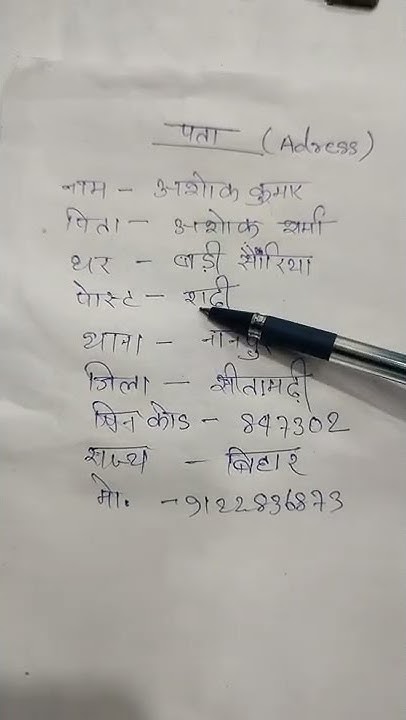 पता (Adress)
नाम - अशोक कुमार
पिता - अशोक शर्मा
घर - बड़ी सौरिया
पोस्ट -
थाना - नानपुर
जिला - सीतामढ़ी
पिन कोड - 847302
राज्य - बिहार
मो. - 9122836873